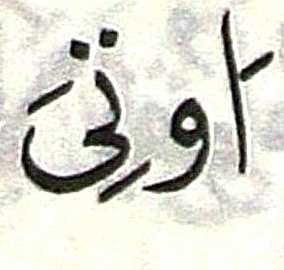 اَوتِیَ